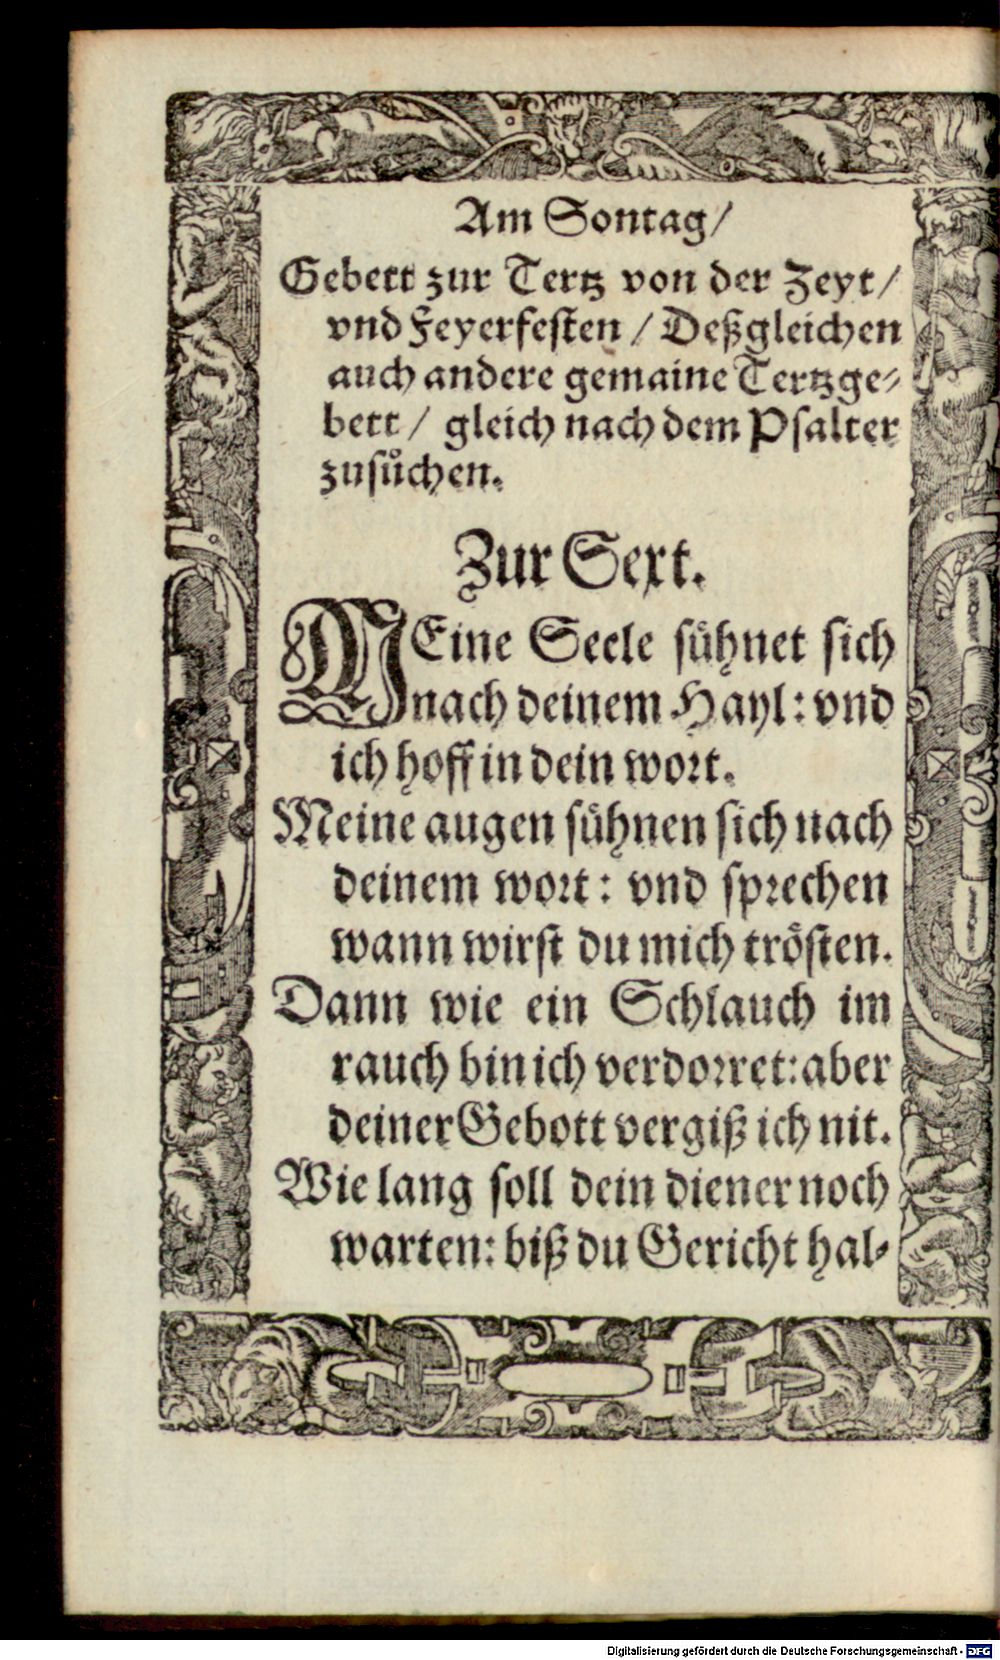 Am Sontag/
Gebett zur Tertz von der Zeyt/
vnd Feyerfesten / Deßgleichen
auch andere gemaine Tertzge-
bett / gleich nach dem Psalter
zusůchen.
Zur Sext.
MEine Seele sühnet sich
nach deinem Hayl: vnd
ich hoff in dein wort.
Meine augen sühnen sich nach
deinem wort: vnd sprechen
wann wirst du mich trösten.
Dann wie ein Schlauch im
rauch bin ich verdorret: aber
deiner Gebott vergiß ich nit.
Wie lang soll dein diener noch
warten: biß du Gericht hal-
Digitalisierung gefördert durch die Deutsche Forschungsgemeinschaft - DFG